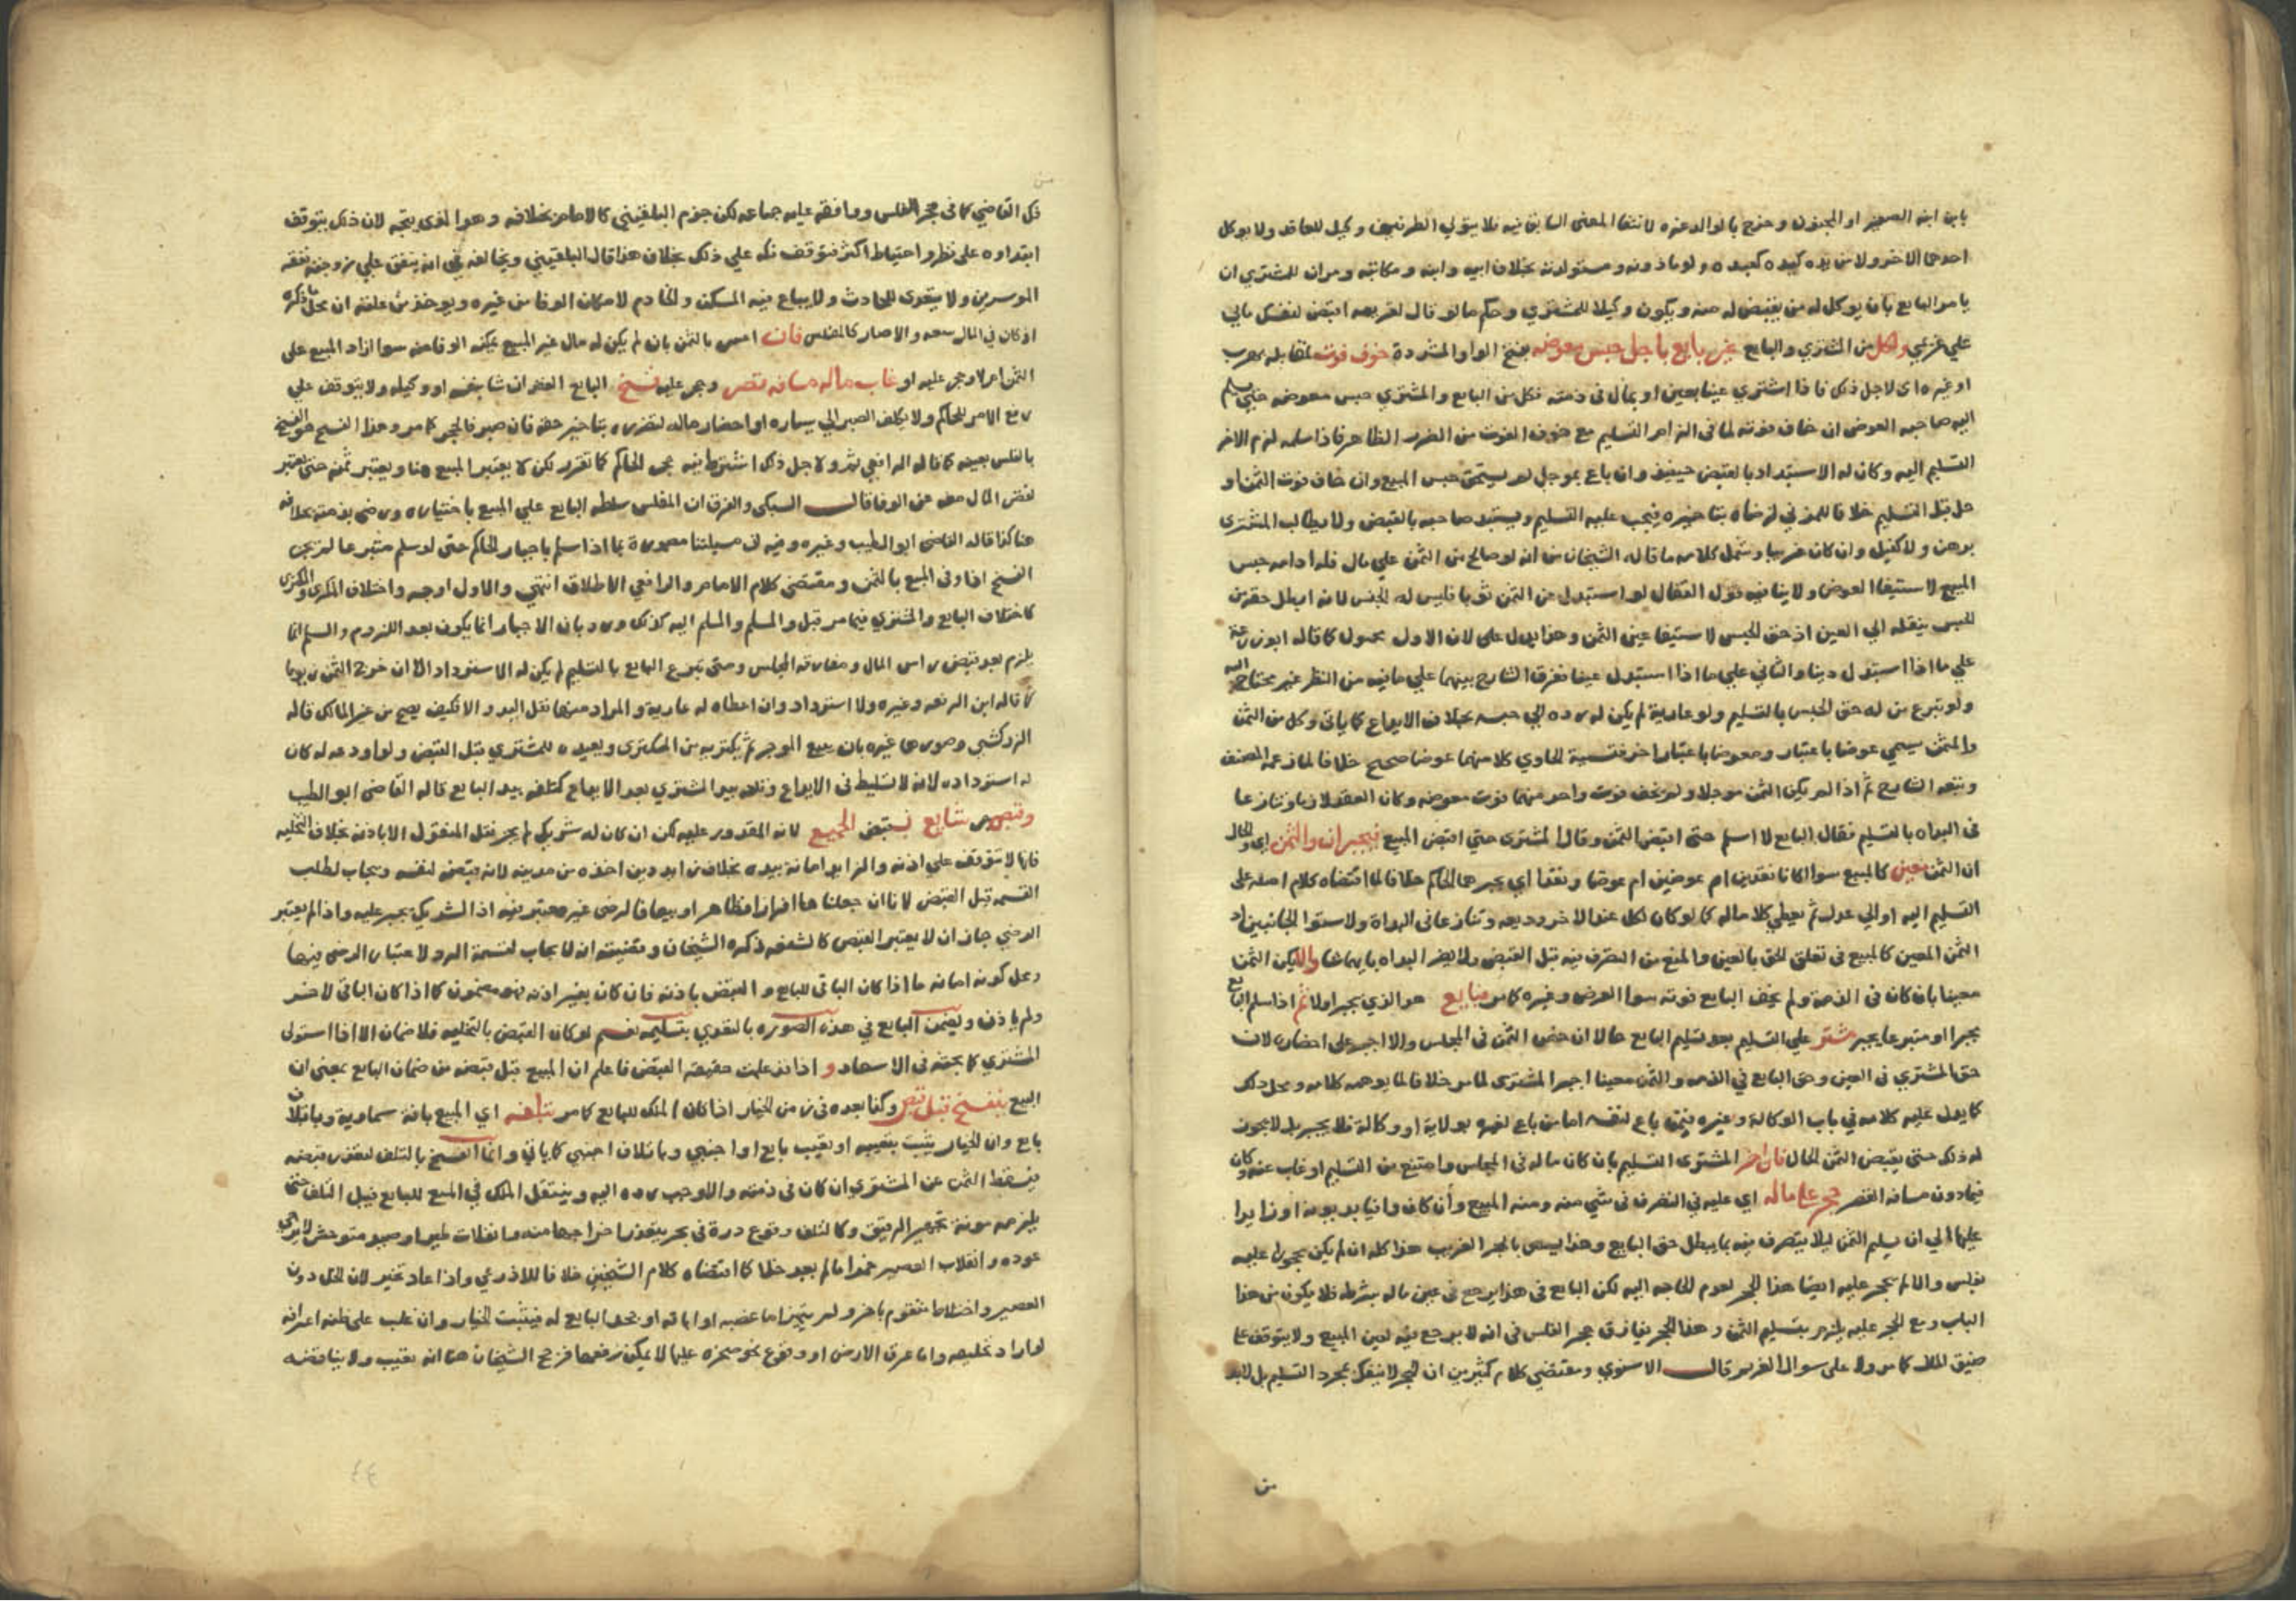 بابن ابنه الصغير او المجنون وخرج بالوالد غيره لانتفا المعنى السابق فيه فلا يتولي الطرفين وكيل للعاقد ولا يوكل
احدهما الاخر ولا من يده كيده كعبده ولو ماذونه ومستولدته بخلاف ابيه وابنه ومكاتبه ومران للمشتري ان
يامر البايع بان يوكل له من يقبض له منه ويكون وكيلا للمشتري وحكم ما لو قال لغريمه اقبض لنفسك مالي
علي غريمي ولكل من المشتري والبايع غير بايع باجل حبس معوضه بفتح الواو المشددة خوف فوت لمقابله بهرب
او غيره اي لاجل ذلك فاذا اشترى عينا بعين او بمال في ذمته فكل من البايع والمشتري حبس معوضه حتى يسلم
اليه صاحبه العوض ان خاف فوته لما في الزام التسليم مع خوف الفوت من الضرر الظاهر فاذا سلمه لزم الاخر
التسليم اليه وكان له الاستبداد بالقبض حينيذ وان باع بموجل لم يستحق حبس المبيع وان خاف فوت الثمن او
حل قبل التسليم خلافا للمزني لرضاه بتاخيره فيجب عليه التسليم ويستبد صاحبه بالقبض ولا يطالب المشتري
برهن ولا كفيل وان كان غريبا وشمل كلامه ما قاله الشيخان من انه لو صالح من الثمن علي مال فله ادامه حبس
المبيع لاستيفا العوض ولا ينافيه قول القفال لو استبدل عن الثمن ثوبا فليس له الحبس لانه ابطل حقه من
الحبس بنقله الي العين اذ حق الحبس لاستيفا عين الثمن وهذا يدل على لان الاول محمول كما قاله ابو زرعة
علي ما اذا استبدل دينا والثاني علي ما اذا استبدل عينا تفرق الشارح بينهما علي مافيه من النظر غير محتاج اليه
ولو تبرع من له حق الحبس بالتسليم ولو عارية لم يكن له رده الي حبسه بخلاف الايداع كما ياتي وكل من الثمن
والمثمن يسمي عوضا باعتبار ومعوضا باعتبار اخر فتسمية الحاوي كلا منهما عوضا صحيح خلافا لما زعمه المصنف
وتبعه الشارح ثم اذا لم يكن الثمن موجلا ولم يخف فوت واحد منهما فوت معوضه وكان العقد لازما وتنازعا
في البداه بالتسليم فقال البايع لا اسلم حتى اقبض الثمن وقال المشتري حتي اقبض المبيع فيجبران والثمن اي والحال
ان الثمن معين كالمبيع سوا اكانا نقدين ام عوضين ام عوضا ونقدا اي يجبرهما الحاكم خلافا لما اقتضاه كلام اصله على
التسليم اليه او الي عدل ثم يعطي كلا ماله كما لو كان لكل عند الاخر وديعه وتنازعا في البداة ولاستوا الجانبين اذ
الثمن المعين كالمبيع في تعلق الحق بالعين والمنع من التصرف فيه قبل القبض ولا يضر البداه بايهما شا والا يكن الثمن
معينا بان كان في الذمة ولم يخف البايع فوته سوا العرض وغيره كما مر فبايع هو الذي يجبر اولا ثم اذا سلم البايع
يجبرا او متبرعا يجبر مشتر علي التسليم بعد تسليم البايع حالا ان حضر الثمن في المجلس والا اجبر على احضاره لان
حق المشتري في العين وحق البايع في الذمه والثمن معينا اجبر المشتري لما مر خلافا لما يوهمه كلامه ومحل ذلك
كما يدل عليه كلامه في باب الوكالة وغيره فيمن باع لنفسه اما من باع لغيره بولاية او وكالة فلا يجبر بل لا يجوز
له ذلك حتى يقبض الثمن الحال فان اخر المشتري التسليم بان كان ماله في المجلس وامتنع من التسليم او غاب عنه وكان
فيما دون مسافه القصر حجر علي ماله اي عليه في التصرف في شي منه ومنه المبيع وان كان وافيا بديونه او زايدا
عليها الي ان يسلم الثمن ليلا يتصرف فيه بما يبطل حق البايع وهذا يسمى بالحجر الغريب هذا كله ان لم يكن محجورا عليه
بفلس والا لم يحجر عليه ايضا هذا الحجر لعدم الحاجه اليه لكن البايع في هذا يرجع في عين ماله بشرطه فلا يكون من هذا
الباب ومع الحجر عليه يلزم بتسليم الثمن وهذا الحجر يفارق حجر الفلس في انه لا يرجع فيه لعين المبيع ولا يتوقف علي
ضيق المال كما مر ولا على سوال الغريم قال الاسنوي ومقتضي كلام كثيرين ان الحجر لا ينفك بمجرد التسليم بل لابد
من
فك القاضي كما في حجر الفلس ووافقه عليه جماعه لكن جزم البلقيني كالامام بخلافه وهو الذي يتجه لان ذلك يتوقف
ابتداوه على نظر واحتياط اكثر فتوقف فكه علي ذلك بخلاف هذا قال البلقيني ويخالفه في انه ينفق علي زوجته نفقه
الموسرين ولا يتعدى للحادث ولا يباع فيه المسكن والخادم لامكان الوفا من غيره ويوخذ من علته ان محل ما ذكره
اذ كان في المال سعه والا صار كالمفلس فان اعسر بالثمن بان لم يكن له مال غير المبيع يمكنه الوفا منه سوا ازاد المبيع على
الثمن ام لا وحجر عليه او غاب ماله مسافه قصر وحجر عليه فسخ البايع العقد ان شا بنفسه او وكيله ولا يتوقف علي
رفع الامر للحاكم ولا يكلف الصبر الي يساره او احضار ماله لتضرره بتاخير حقه فان صبر فالحجر كما مر وهذا الفسخ هو الفسخ
بالفلس بعينه كما قاله الرافعي ثم ولاجل ذلك اشترط فيه حجر الحاكم كما تقرر لكن لا يعتبر المبيع هنا ويعتبر ثمنه حتى يعتبر
نقص المال معه عن الوفا قال السبكي والفرق ان المفلس سلطه البايع علي المبيع باختياره ورضى بذمته بخلافه
هنا كذا قاله القاضي ابو الطيب وغيره وفيه ان مسيلتنا مصورة بما اذا سلم باجبار الحاكم حتى لو سلم متبرعا لم يجز
الفسخ اذا وفى المبيع بالثمن ومقتضى كلام الامام والرافعي الاطلاق انتهى والاول اوجه واختلاف المكري والمكتري
كاختلاف البايع والمشتري فيما مر قبل والمسلم والمسلم اليه كذلك ورد بان الاجبار انما يكون بعد اللزوم والسلم انما
يلزم بعد قبض راس المال ومفارقه المجلس ومتى تبرع البايع بالتسليم لم يكن له الاسترداد الا ان خرج الثمن زيوفا
كما قاله ابن الرفعه وغيره ولا استرداد وان اعطاه له عارية والمراد منها نقل اليد والا فكيف يصح من غير المالك قاله
الزركشي وصورها غيره بان يبيع الموجر ثم يكتريه من المكتري ويعيده للمشتري قبل القبض ولو اودعه له كان
له استرداده لانه لا تسليط في الايداع وتلفه بيد المشتري بعد الايداع كتلفه بيد البايع قاله القاضي ابو الطيب
وقبض شايع بقبض الجميع لانه المقدور عليه لكن ان كان له شريك لم يجز نقل المنقول الا باذنه بخلاف التخليه
فانها لا تتوقف علي اذنه والزايد امانة بيده بخلاف زايد دين اخذه من مدينه لانه قبضه لنفسه ويجاب لطلب
القسمه قبل القبض لانا ان جعلناها افرازا فظاهر او بيعا فالرضى غير معتبر فيه اذ الشريك يجبر عليه واذا لم يعتبر
الرضي جاز ان لا يعتبر القبض كالشفعه ذكره الشيخان وقضيته ان لا يجاب لقسمة الرد ولاعتبار الرضى فيها
ومحل كونه امانه ما اذا كان الباقي للبايع والقبض باذنه فان كان بغير اذنه فهو مضمون كما اذا كان الباقي لاخر
ولم ياذن ويضمن البايع في هذه الصوره بالتعدي بتسليمه نعم لو كان القبض بالتخليه فلا ضمان الا اذا استولى
المشتري كما بحثه في الاسعاد و اذا قد علمت حقيقه القبض فاعلم ان المبيع قبل قبضه من ضمان البايع بمعنى ان
البيع ينفسخ قبل قبض وكذا بعده في زمن الخيار اذا كان الملك للبايع كما مر بتلفه اي المبيع بافة سماوية وباتلاف
بايع وان الخيار يثبت بتعييبه او تعيب بايع او اجنبي وباتلاف اجنبي كما ياتي وانما الفسخ بالتلف لتعذر قبضه
فيسقط الثمن عن المشتري ان كان في ذمته والا وجب رده اليه وينتقل الملك في المبيع للبايع قبيل التلف حتى
يلزمه مونة تجهيز الرقيق وكالتلف وقوع درة في بحر يتعذر اخراجها منه وانفلات طير او صيد متوحش لا يرجى
عوده وانقلاب العصير خمرا مالم يعد خلا كما اقتضاه كلام الشيخين خلافا للاذرعي واذا عاد تخير لان الخل دون
العصير واختلاط متقوم باخر ولم يتميز اما غصبه او اباقه او جحد البايع له فيثبت الخيار وان غلب على ظنه اعراضه
لو اراد تخليصه واما غرق الارض او وقوع نحو صخره عليها لا يمكن رفعها فرجح الشيخان هنا انه تعيب ولا يناقضه